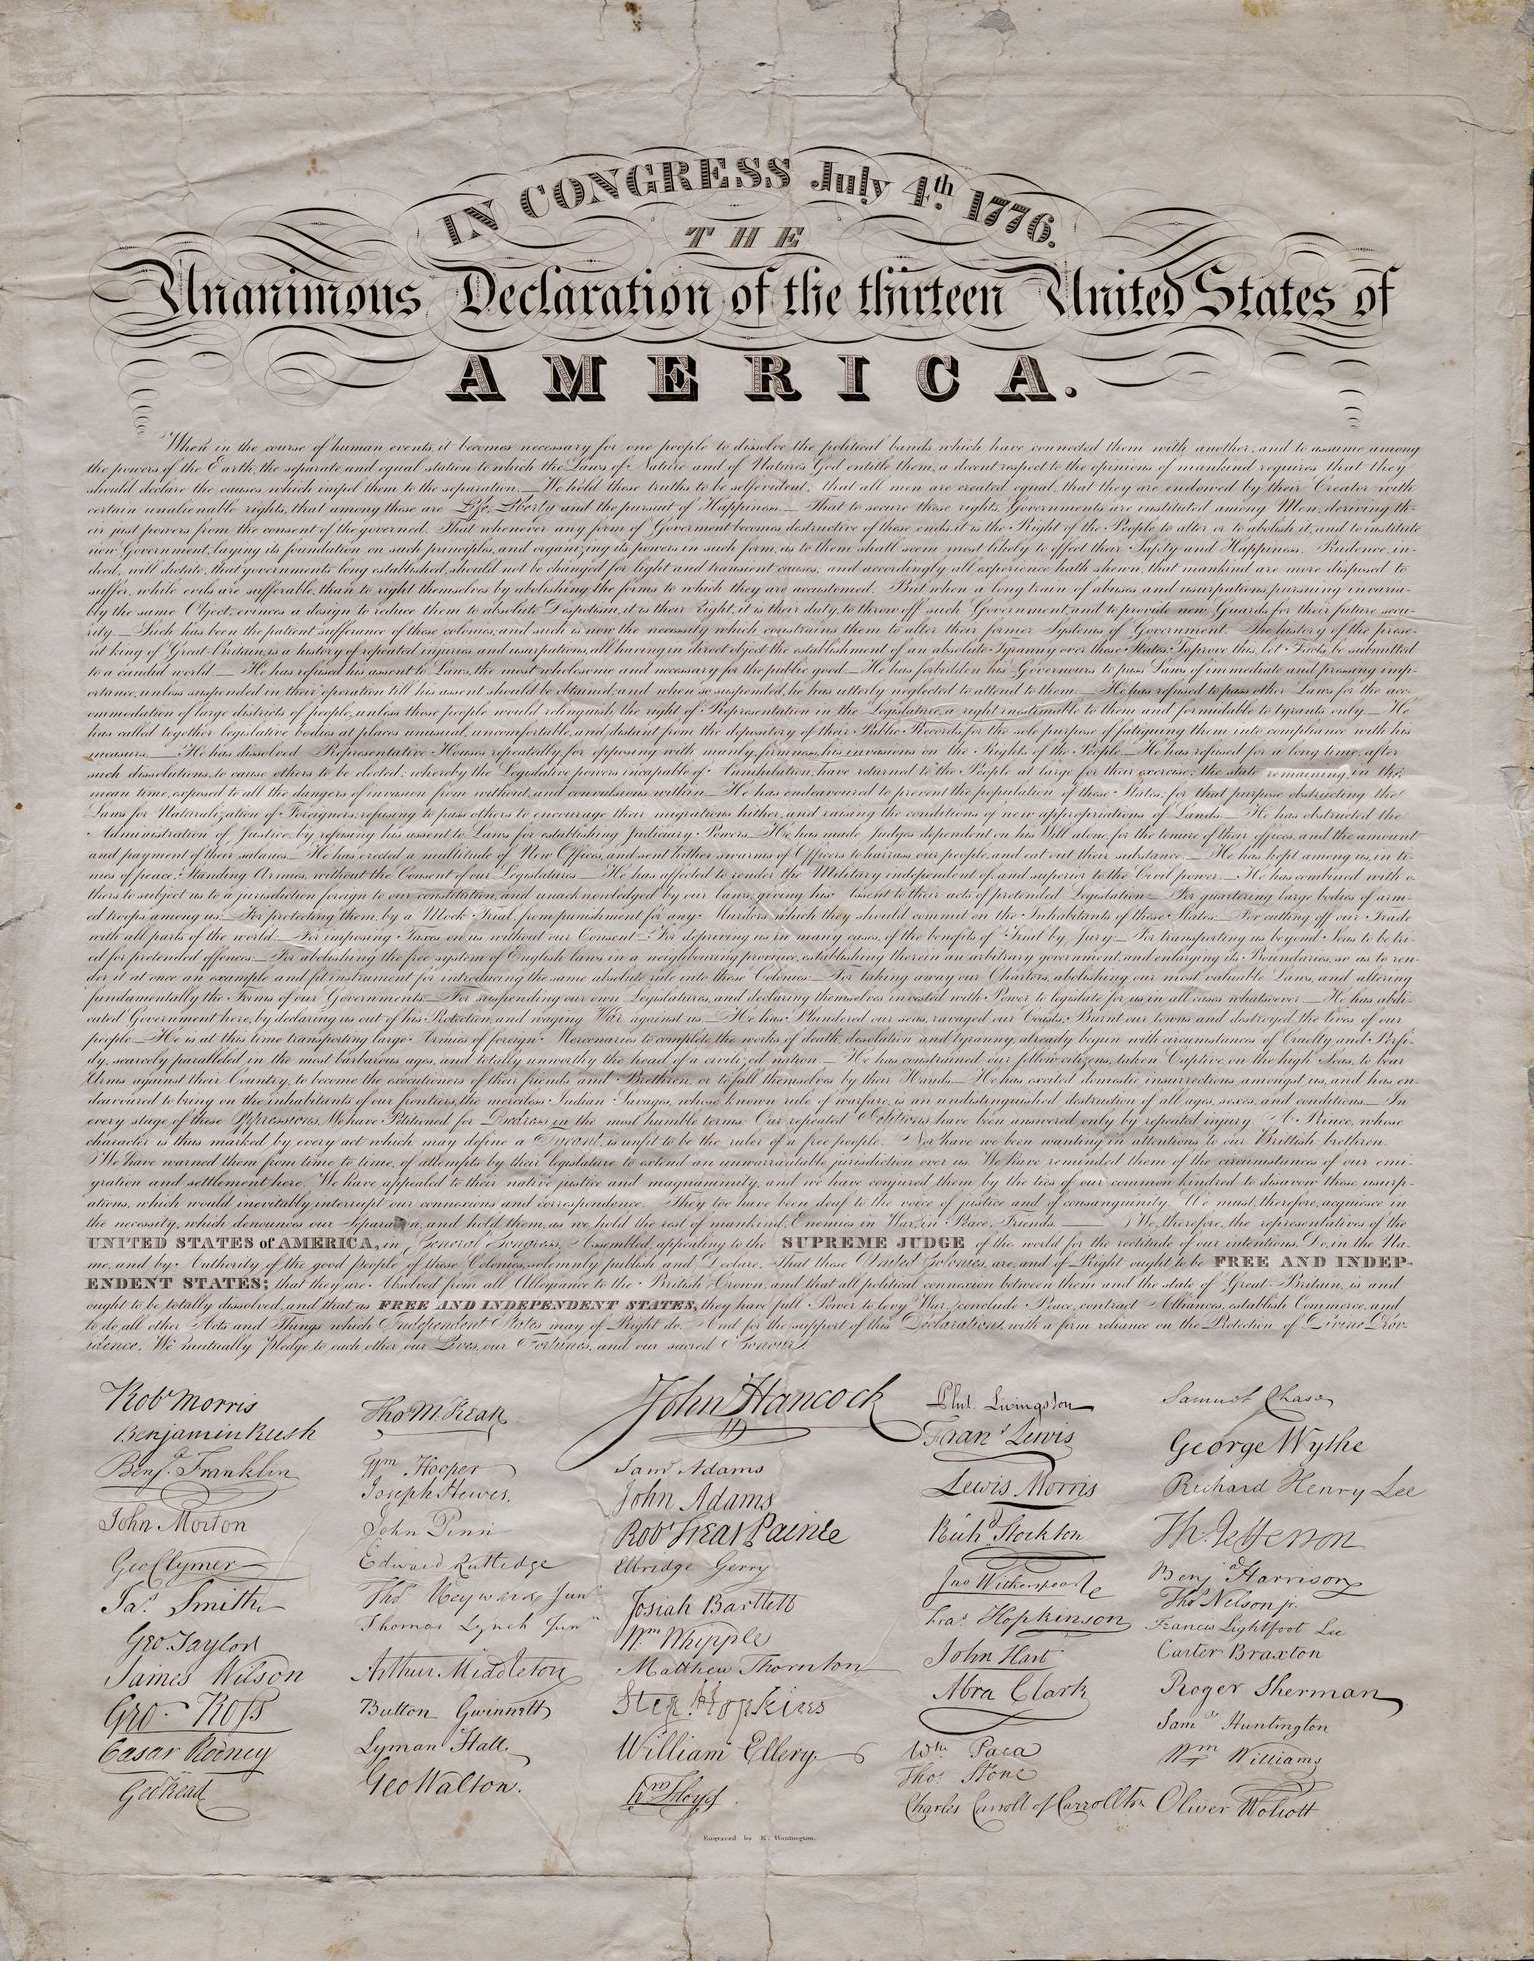 IN CONGRESS July 4th. 1776.
THE
Unanimous Declaration of the thirteen United States of
AMERICA.
When in the course of human events, it becomes necessary for one people to dissolve the political bands which have connected them with another, and to assume among
the powers of the Earth, the separate and equal station to which the Laws of Nature and of Nature's God entitle them, a decent respect to the opinions of mankind requires that they
should declare the causes which impel them to the separation.— We hold these truths to be selfevident; that all men are created equal, that they are endowed by their Creator with
certain unalienable rights, that among these are Life, Liberty and the pursuit of Happiness.— That to secure these rights, Governments are instituted among Men, deriving th-
eir just powers from the consent of the governed. That whenever any form of Goverment becomes destructive of these ends, it is the Right of the People to alter or to abolish it, and to institute
new Government, laying its foundation on such principles, and organizing its powers in such form, as to them shall seem most likely to effect their Safty and Happiness. Prudence, in-
deed, will dictate, that governments long established, should not be changed for light and transient causes, and accordingly all experience hath shewn, that mankind are more disposed to
suffer, while evils are sufferable, than to right themselves by abolishing the forms to which they are accustomed. But when a long train of abuses and usurpations, pursuing invaria-
bly the same Object, evinces a design to reduce them to absolute Despotism, it is their right, it is their duty, to throw off such Government, and to provide new Guards for their future secu-
rity.— Such has been the patient sufferance of these colonies; and such is now the necessity which constrains them to alter their former Systems of Government. The history of the prese-
nt king of Great-Britain, is a history of repeated injuries and usurpations, all having in direct object the establishment of an absolute Tyranny over these States. To prove this, let Facts be submitted
to a candid world.— He has refused his assent to Laws, the most wholesome and necessary for the public good.— He has forbidden his Governours to pass Laws of immediate and pressing imp-
ortance, unless suspended in their operation till his assent should be obtained; and when so suspended, he has utterly neglected to attend to them.— He has refused to pass other Laws for the acc-
ommodation of large districts of people, unless those people would relinquish the right of Representation in the Legislature, a right inestimable to them and formidable to tyrants only.— He
has called together legislative bodies at places unusual, uncomfortable, and distant from the depository of their Public Records, for the sole purpose of fatiguing them into compliance with his
measures.— He has dissolved Representative Houses repeatedly, for opposing with manly firmness, his invasions on the Rights of the People.— He has refused for a long time, after
such dissolutions, to cause others to be elected; whereby the Legislative powers incapable of Annihilation, have returned to the People at large for their exercise; the state remaining, in the
mean time, exposed to all the dangers of invasion from without, and convulsions within.— He has endeavoured to prevent the population of these States; for that purpose obstructing the
Laws for Naturalization of Foreigners; refusing to pass others to encourage their migrations hither, and raising the conditions of new appropriations of Lands.— He has obstructed the
Administration of Justice, by refusing his assent to Laws for establishing Judiciary Powers.— He has made Judges dependent on his Will alone, for the tenure of their offices, and the amount
and payment of their salaries.— He has erected a multitude of New Offices, and sent hither swarms of Officers to harrass our people, and eat out their substance.— He has kept among us, in ti-
mes of peace, Standing Armies, without the Consent of our Legislatures.— He has affected to render the Military independent of, and superior to the Civil power.— He has combined with o-
thers to subject us to a jurisdiction foreign to our constitution, and unacknowledged by our laws; giving his Assent to their acts of pretended Legislation.— For quartering large bodies of arm-
ed troops among us:— For protecting them, by a Mock Trial, from punishment for any Murders which they should commit on the Inhabitants of these States:— For cutting off our Trade
with all parts of the world:— For imposing Taxes on us without our Consent:— For depriving us in many cases, of the benefits of Trial by Jury:— For transporting us beyond Seas to be tri-
ed for pretended offences:— For abolishing the free system of English laws in a neighbouring province, establishing therein an arbitrary government, and enlarging its Boundaries, so as to ren-
der it at once an example and fit instrument for introducing the same absolute rule into these Colonies:— For taking away our Charters, abolishing our most valuable Laws, and altering
fundamentally the Forms of our Governments:— For suspending our own Legislatures, and declaring themselves invested with Power to legislate for us in all cases whatsoever.— He has abdi-
cated Government here, by declaring us out of his Protection, and waging War against us.— He has Plundered our seas, ravaged our Coasts, Burnt our towns and destroyed the lives of our
people.— He is at this time transporting large Armies of foreign Mercenaries to complete the works of death, desolation and tyranny, already begun with circumstances of Cruelty and Perfi-
dy, scarcely paralleled in the most barbarous ages, and totally unworthy the head of a civilized nation.— He has constrained our fellow citizens, taken Captive, on the high Seas, to bear
Arms against their Country, to become the executioners of their friends and Brethren, or to fall themselves by their Hands.— He has excited domestic insurrections amongst us, and has en-
deavoured to bring on the inhabitants of our frontiers, the merciless Indian Savages, whose known rule of warfare, is an undistinguished destruction of all ages, sexes, and conditions.— In
every stage of these Oppressions We have Petitioned for Redress in the most humble terms: Our repeated Petitions have been answered only by repeated injury. A Prince, whose
character is thus marked by every act which may define a Tyrant, is unfit to be the ruler of a free people. Nor have we been wanting in attentions to our Brittish brethren.
We have warned them from time to time, of attempts by their legislature to extend an unwarrantable jurisdiction over us. We have reminded them of the circumstances of our emi-
gration and settlement here. We have appealed to their native justice and magnanimity, and we have conjured them by the ties of our common kindred to disavow these usurp-
ations, which would inevitably interrupt our connexions and correspondence. They too have been deaf to the voice of justice and of consanguinity. We must, therefore, acquiesce in
the necessity, which denounces our Separation, and hold them, as we hold the rest of mankind, Enemies in War, in Peace, Friends.— We, therefore, the representatives of the
UNITED STATES of AMERICA, in General Congress, Assembled, appealing to the SUPREME JUDGE of the world for the rectitude of our intentions, Do, in the Na-
me, and by Authority of the good people of these Colonies, solemnly publish and Declare, That these United Colonies, are, and of Right ought to be FREE AND INDEP-
ENDENT STATES; that they are Absolved from all Allegiance to the British Crown, and that all political connexion between them and the state of Great-Britain, is and
ought to be, totally dissolved, and that as FREE AND INDEPENDENT STATES, they have full Power to levy War, conclude Peace, contract Alliances, establish Commerce, and
to do all other Acts and Things which Independent States may of Right do. And for the support of this Declaration, with a firm reliance on the Protection of Divine Prov-
idence, We mutually pledge to each other our Lives, our Fortunes, and our sacred Honour.
Robt Morris
Benjamin Rush
Benja. Franklin
John Morton
Geo Clymer
Jas. Smith
Geo. Taylor
James Wilson
Geo. Ross
Caesar Rodney
Geo Read
Tho M. Kean
Wm Hooper
Joseph Hewes,
John Penn
Edward Rutledge
Thos. Heyward Junr.
Thomas Lynch Junr.
Arthur Middleton
Button Gwinnett
Lyman Hall
Geo Walton.
John Hancock
Saml Adams
John Adams
Robt Treat Paine
Elbridge Gerry
Josiah Bartlett
Wm. Whipple
Matthew Thornton
Step. Hopkins
William Ellery
Wm Floyd
Phil. Livingston
Frans. Lewis
Lewis Morris
Richd. Stockton
Jno Witherspoon
Fras. Hopkinson
John Hart
Abra Clark
Wm. Paca
Thos. Stone
Charles Carroll of Carrollton
Samuel Chase
George Wythe
Richard Henry Lee
Th. Jefferson
Benja. Harrison
Thos. Nelson jr.
Francis Lightfoot Lee
Carter Braxton
Roger Sherman
Saml. Huntington
Wm. Williams
Oliver Wolcott
Engraved by E. Huntington.